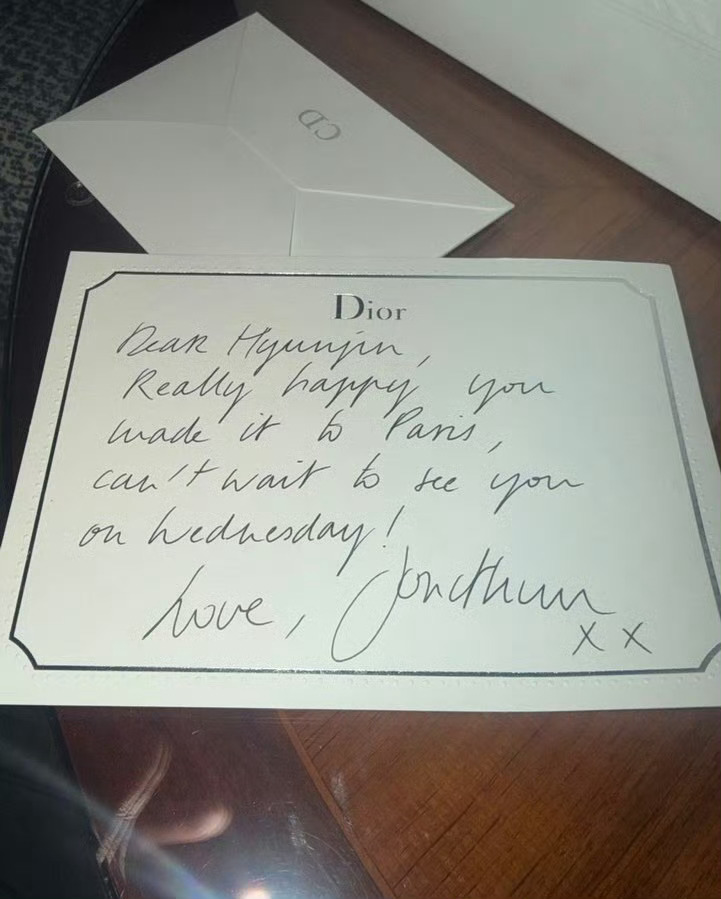 CD
Dior
Dear Hyunjin,
Really happy you
made it to Paris,
can't wait to see you
on Wednesday!
Love, Jonathan
x x